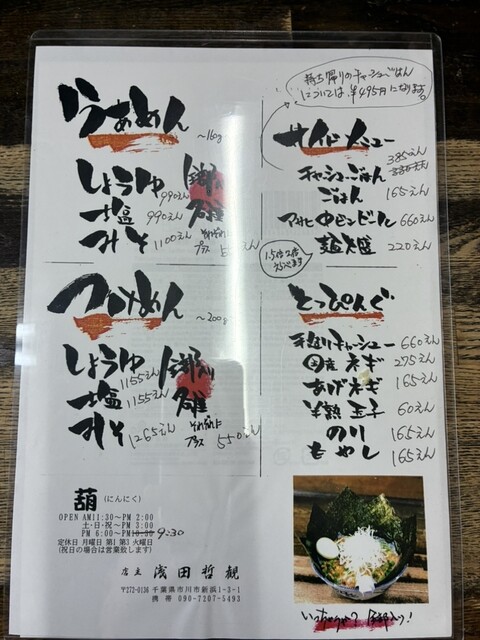 らぁめん ～160g
しょうゆ 990えん
塩 990えん
みそ 1100えん
全部入り
それぞれに
プラス 5
つけめん ～200g
しょうゆ 1155えん
塩 1155えん
みそ 1265えん
全部入り
それぞれに
プラス 550えん
葫 (にんにく)
OPEN AM11:30～PM 2:00
土・日・祝～PM 3:00
PM 6:00～PM 9:30
定休日 月曜日 第1 第3 火曜日
(祝日の場合は営業致します)
店主 浅田哲観
〒272-0136 千葉県市川市新浜1-3-1
携帯 090-7207-5493
持ち帰りのチャーシューごはん
については ¥495円になります。
サイドメニュー
チャーシューごはん 385えん
ごはん 165えん
アサヒ中ビンビール 660えん
麺大盛 220えん
1.5倍 2倍
えらべます
とっぴんぐ
手造りチャーシュー 660えん
国産ネギ 275えん
あげネギ 165えん
半熟玉子 60えん
のり 165えん
もやし 165えん
いっちゃう? 全部入り!